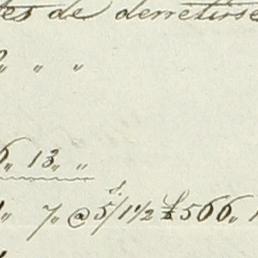 tes de derretirse
" " "
6 " 13 " "
" 7 " @ 5/1½ £566 "